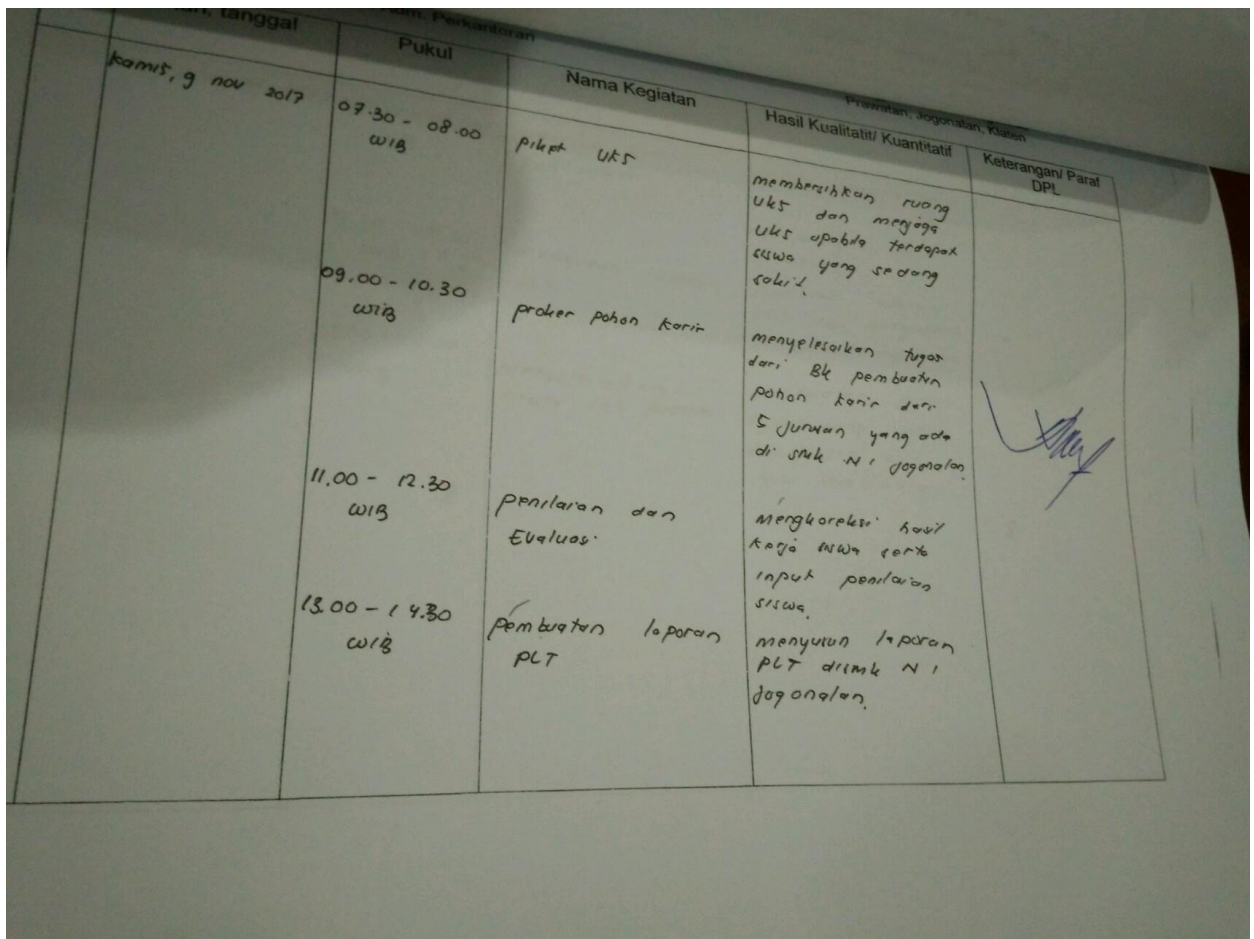 tanggal
Adm. Perkantoran
Prawatan, Jogonalan, Klaten
Pukul
Nama Kegiatan
Hasil Kualitatif/ Kuantitatif
Keterangan/ Paraf
DPL
kamis, 9 nov 2017
07.30 - 08.00
WIB
piket UKS
membersihkan ruang
UKS dan menjaga
UKS apabila terdapat
siswa yang sedang
sakit.
09.00 - 10.30
WIB
proker pohon karir
menyelesaikan tugas
dari BK pembuatan
pohon karir dari
5 jurusan yang ada
di smk N 1 jogonalan.
11.00 - 12.30
WIB
penilaian dan
Evaluasi
Mengkoreksi hasil
kerja siswa serta
input penilaian
siswa.
13.00 - 14.30
WIB
pembuatan laporan
PLT
menyusun laporan
PLT dismk N 1
jogonalan.